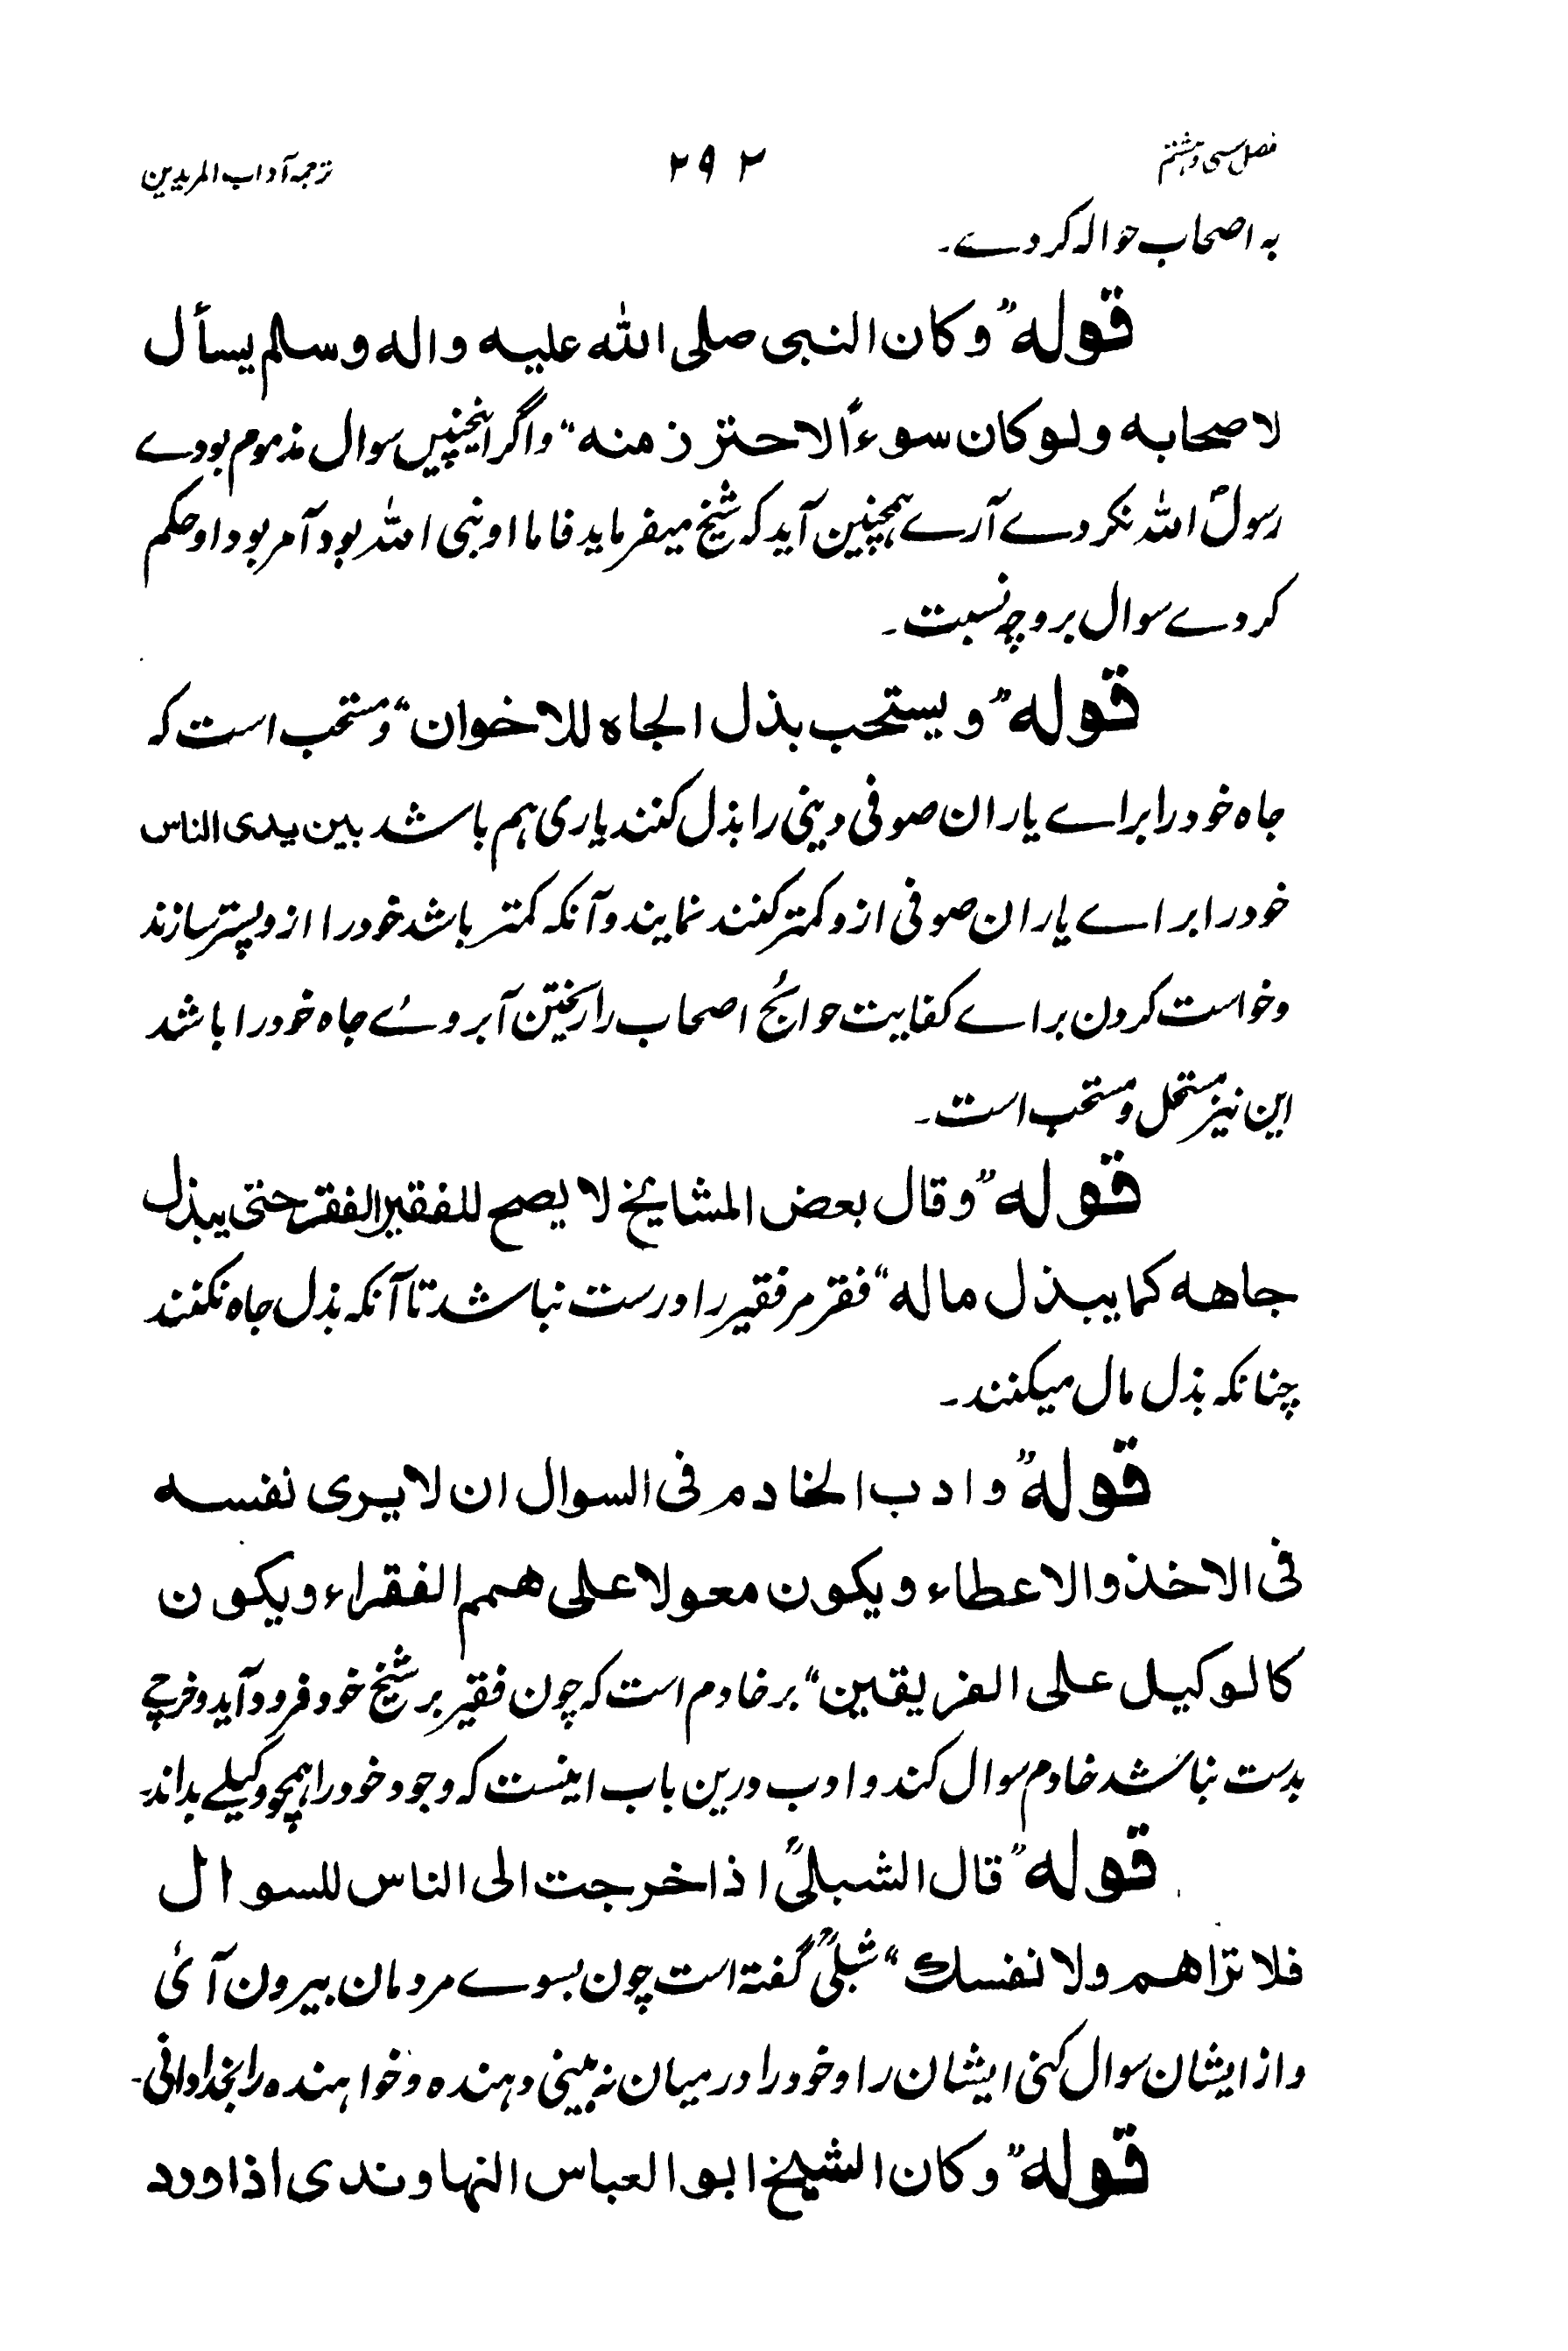 فصل سی و هشتم ۲۹۲ ترجمہ آداب المریدین
بہ اصحاب حوالہ کردے۔
قوله "وکان النبی صلی الله علیه واله وسلم یسأل
لاصحابه ولوکان سوءاً لاحترز منه" واگر اینچنیں سوال مذموم بودے
رسولؐ اللہ نکردے آرے ہمچنین آید کہ شیخ میفرماید فاما او نبی اللہ بود آمر بود او حکم
کردے سوال بر وجہ نسبت۔
قوله "ویستحب بذل الجاه للاخوان" و مستحب است کہ
جاہ خود را براے یاران صوفی دینی را بذل کنند یاری ہم باشد بین یدی الناس
خود را براے یاران صوفی ازو کمتر کنند نمایند و آنکہ کمتر باشد خود را ازو پستر سازند
و خواست کردن براے کفایت حوائج اصحاب را ریختن آبروئے جاہ خود را باشد
این نیز مستحل و مستحب است۔
قوله "وقال بعض المشایخ لا یصح للفقیر الفقر حتی یبذل
جاهه کما یبذل ماله" فقر مر فقیر را درست نباشد تا آنکہ بذل جاہ نکنند
چنانکہ بذل مال میکنند۔
قوله "وادب الخادم فی السوال ان لا یری نفسه
فی الاخذ والاعطاء ویکون معولا علی همم الفقراء ویکون
کالوکیل علی الفریقین" بر خادم است کہ چون فقیر بر شیخ خود فرود آید و خرچے
بدست نباشد خادم سوال کند و ادب درین باب اینست کہ وجود خود را ہمچو وکیلے بداند۔
قوله "قال الشبلیؒ اذا خرجت الی الناس للسوال
فلا تراهم ولا نفسك" شبلیؒ گفتہ است چون بسوے مردمان بیرون آئی
و از ایشان سوال کنی ایشان را و خود را درمیان نہ بینی دہندہ و خواہندہ را بخدا دانی۔
قوله "وکان الشیخ ابو العباس النهاوندی اذا ورد